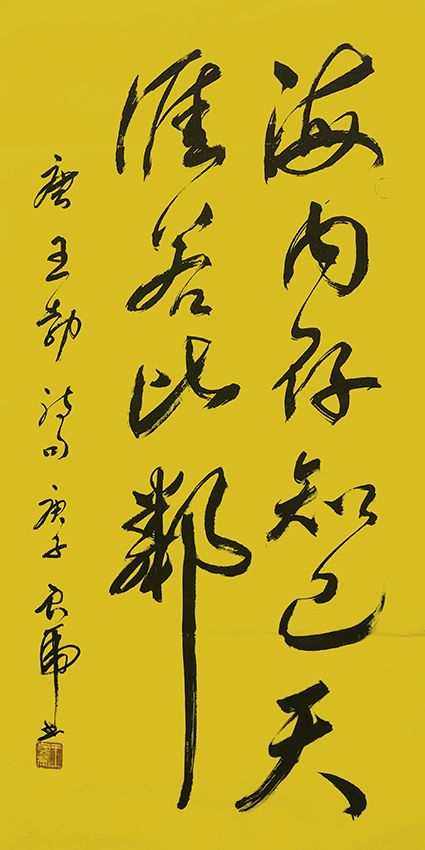 海内存知己天
涯若比邻
唐王勃诗句庚子君虎书